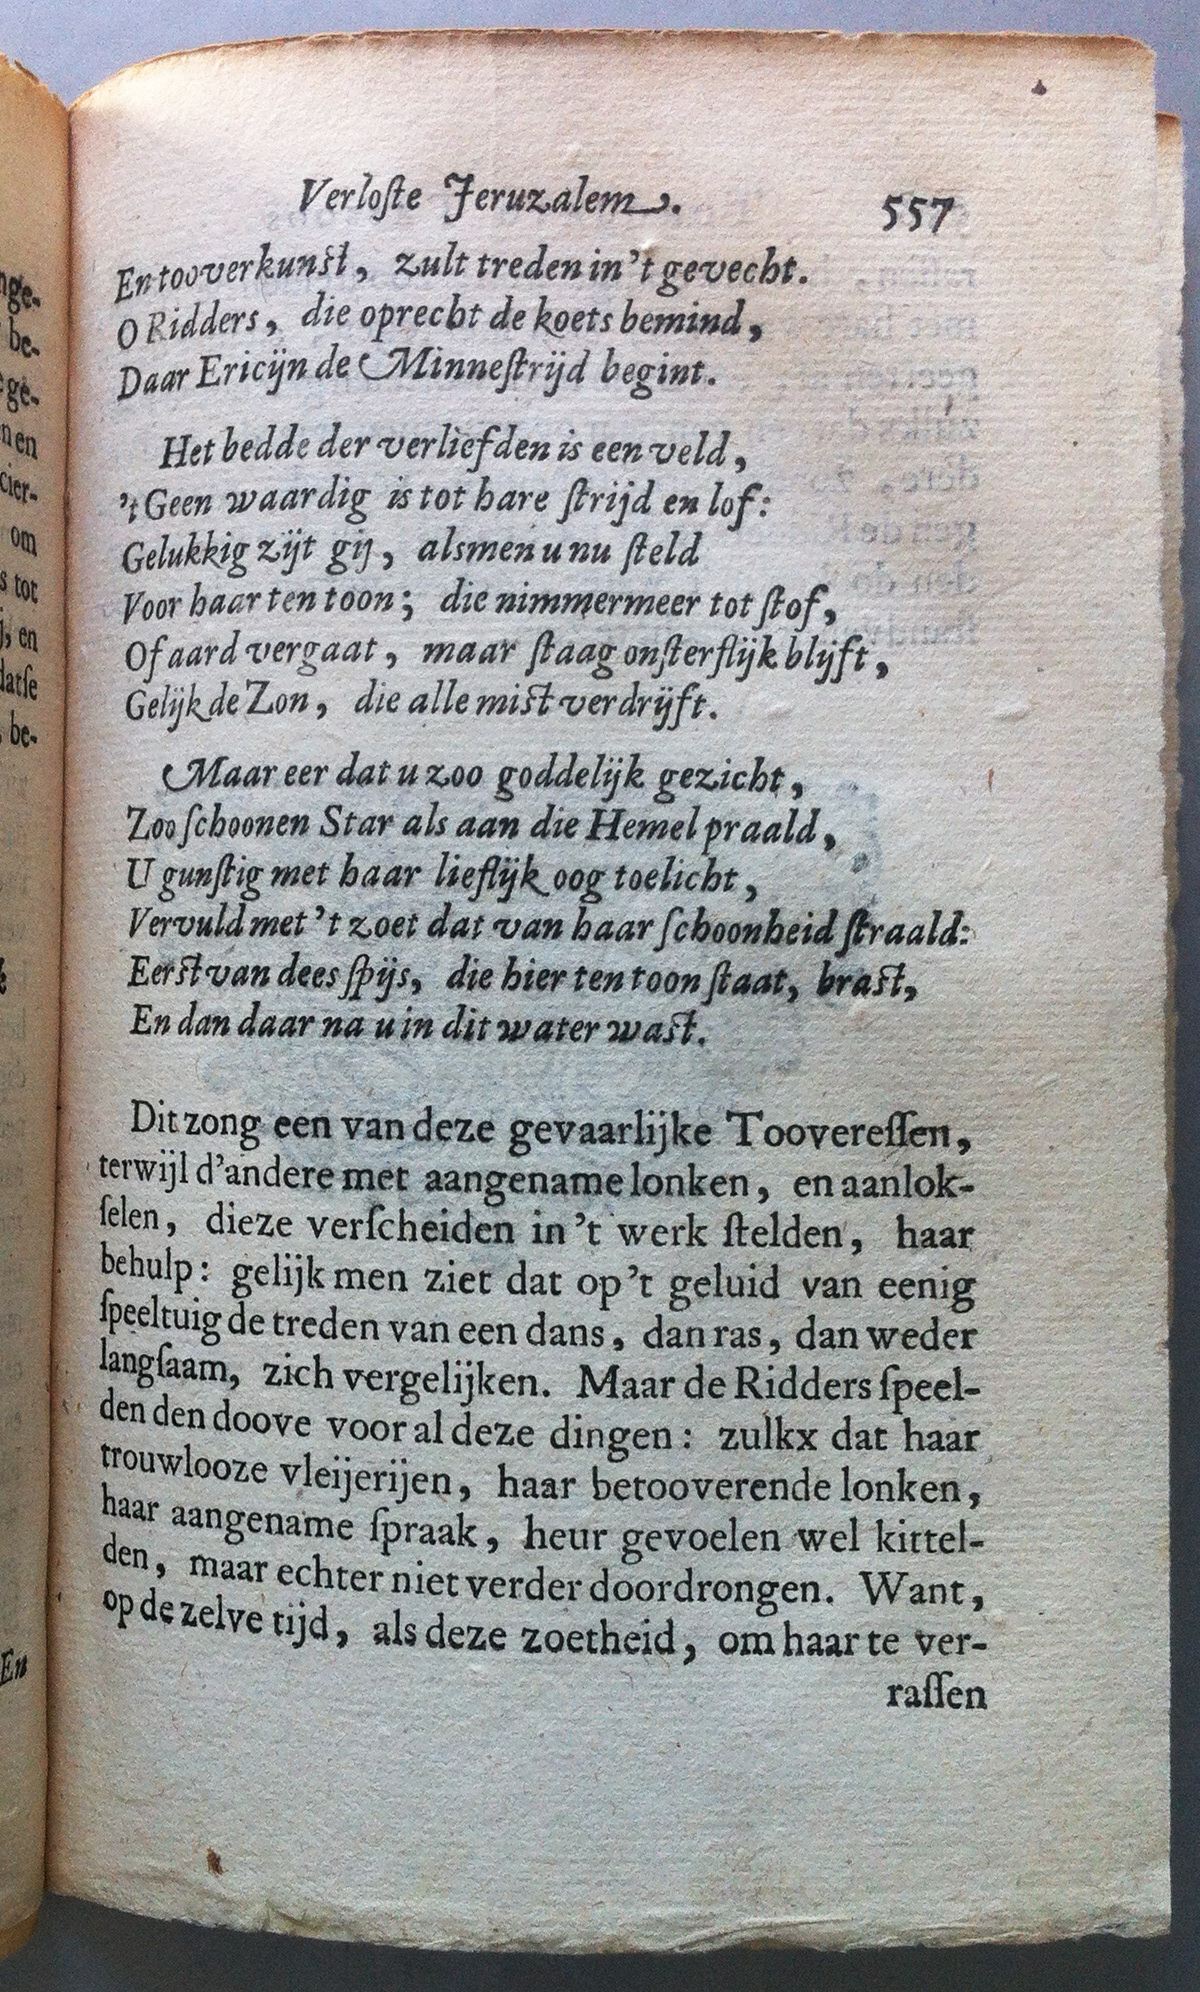 Verloſte Jeruzalem.
557
En tooverkunst, zult treden in 't gevecht.
O Ridders, die oprecht de koets bemind,
Daar Ericijn de Minneſtrijd begint.
Het bedde der verliefden is een veld,
't Geen waardig is tot hare ſtrijd en lof:
Gelukkig zijt gij, alsmen u nu ſteld
Voor haar ten toon; die nimmermeer tot ſtof,
Of aard vergaat, maar ſtaag onſterflijk blijft,
Gelijk de Zon, die alle mist verdrijft.
Maar eer dat u zoo goddelijk gezicht,
Zoo ſchoonen Star als aan die Hemel praald,
U gunſtig met haar lieflijk oog toelicht,
Vervuld met 't zoet dat van haar ſchoonheid ſtraald:
Eerst van dees ſpijs, die hier ten toon ſtaat, brast,
En dan daar na u in dit water wast.
Dit zong een van deze gevaarlijke Toovereſſen,
terwijl d'andere met aangename lonken, en aanlok-
ſelen, dieze verſcheiden in 't werk ſtelden, haar
behulp: gelijk men ziet dat op 't geluid van eenig
ſpeeltuig de treden van een dans, dan ras, dan weder
langſaam, zich vergelijken. Maar de Ridders ſpeel-
den den doove voor al deze dingen: zulkx dat haar
trouwlooze vleijerijen, haar betooverende lonken,
haar aangename ſpraak, heur gevoelen wel kittel-
den, maar echter niet verder doordrongen. Want,
op de zelve tijd, als deze zoetheid, om haar te ver-
raſſen
nge-
be-
ge-
n en
cier-
om
s tot
j, en
datſe
be-
En